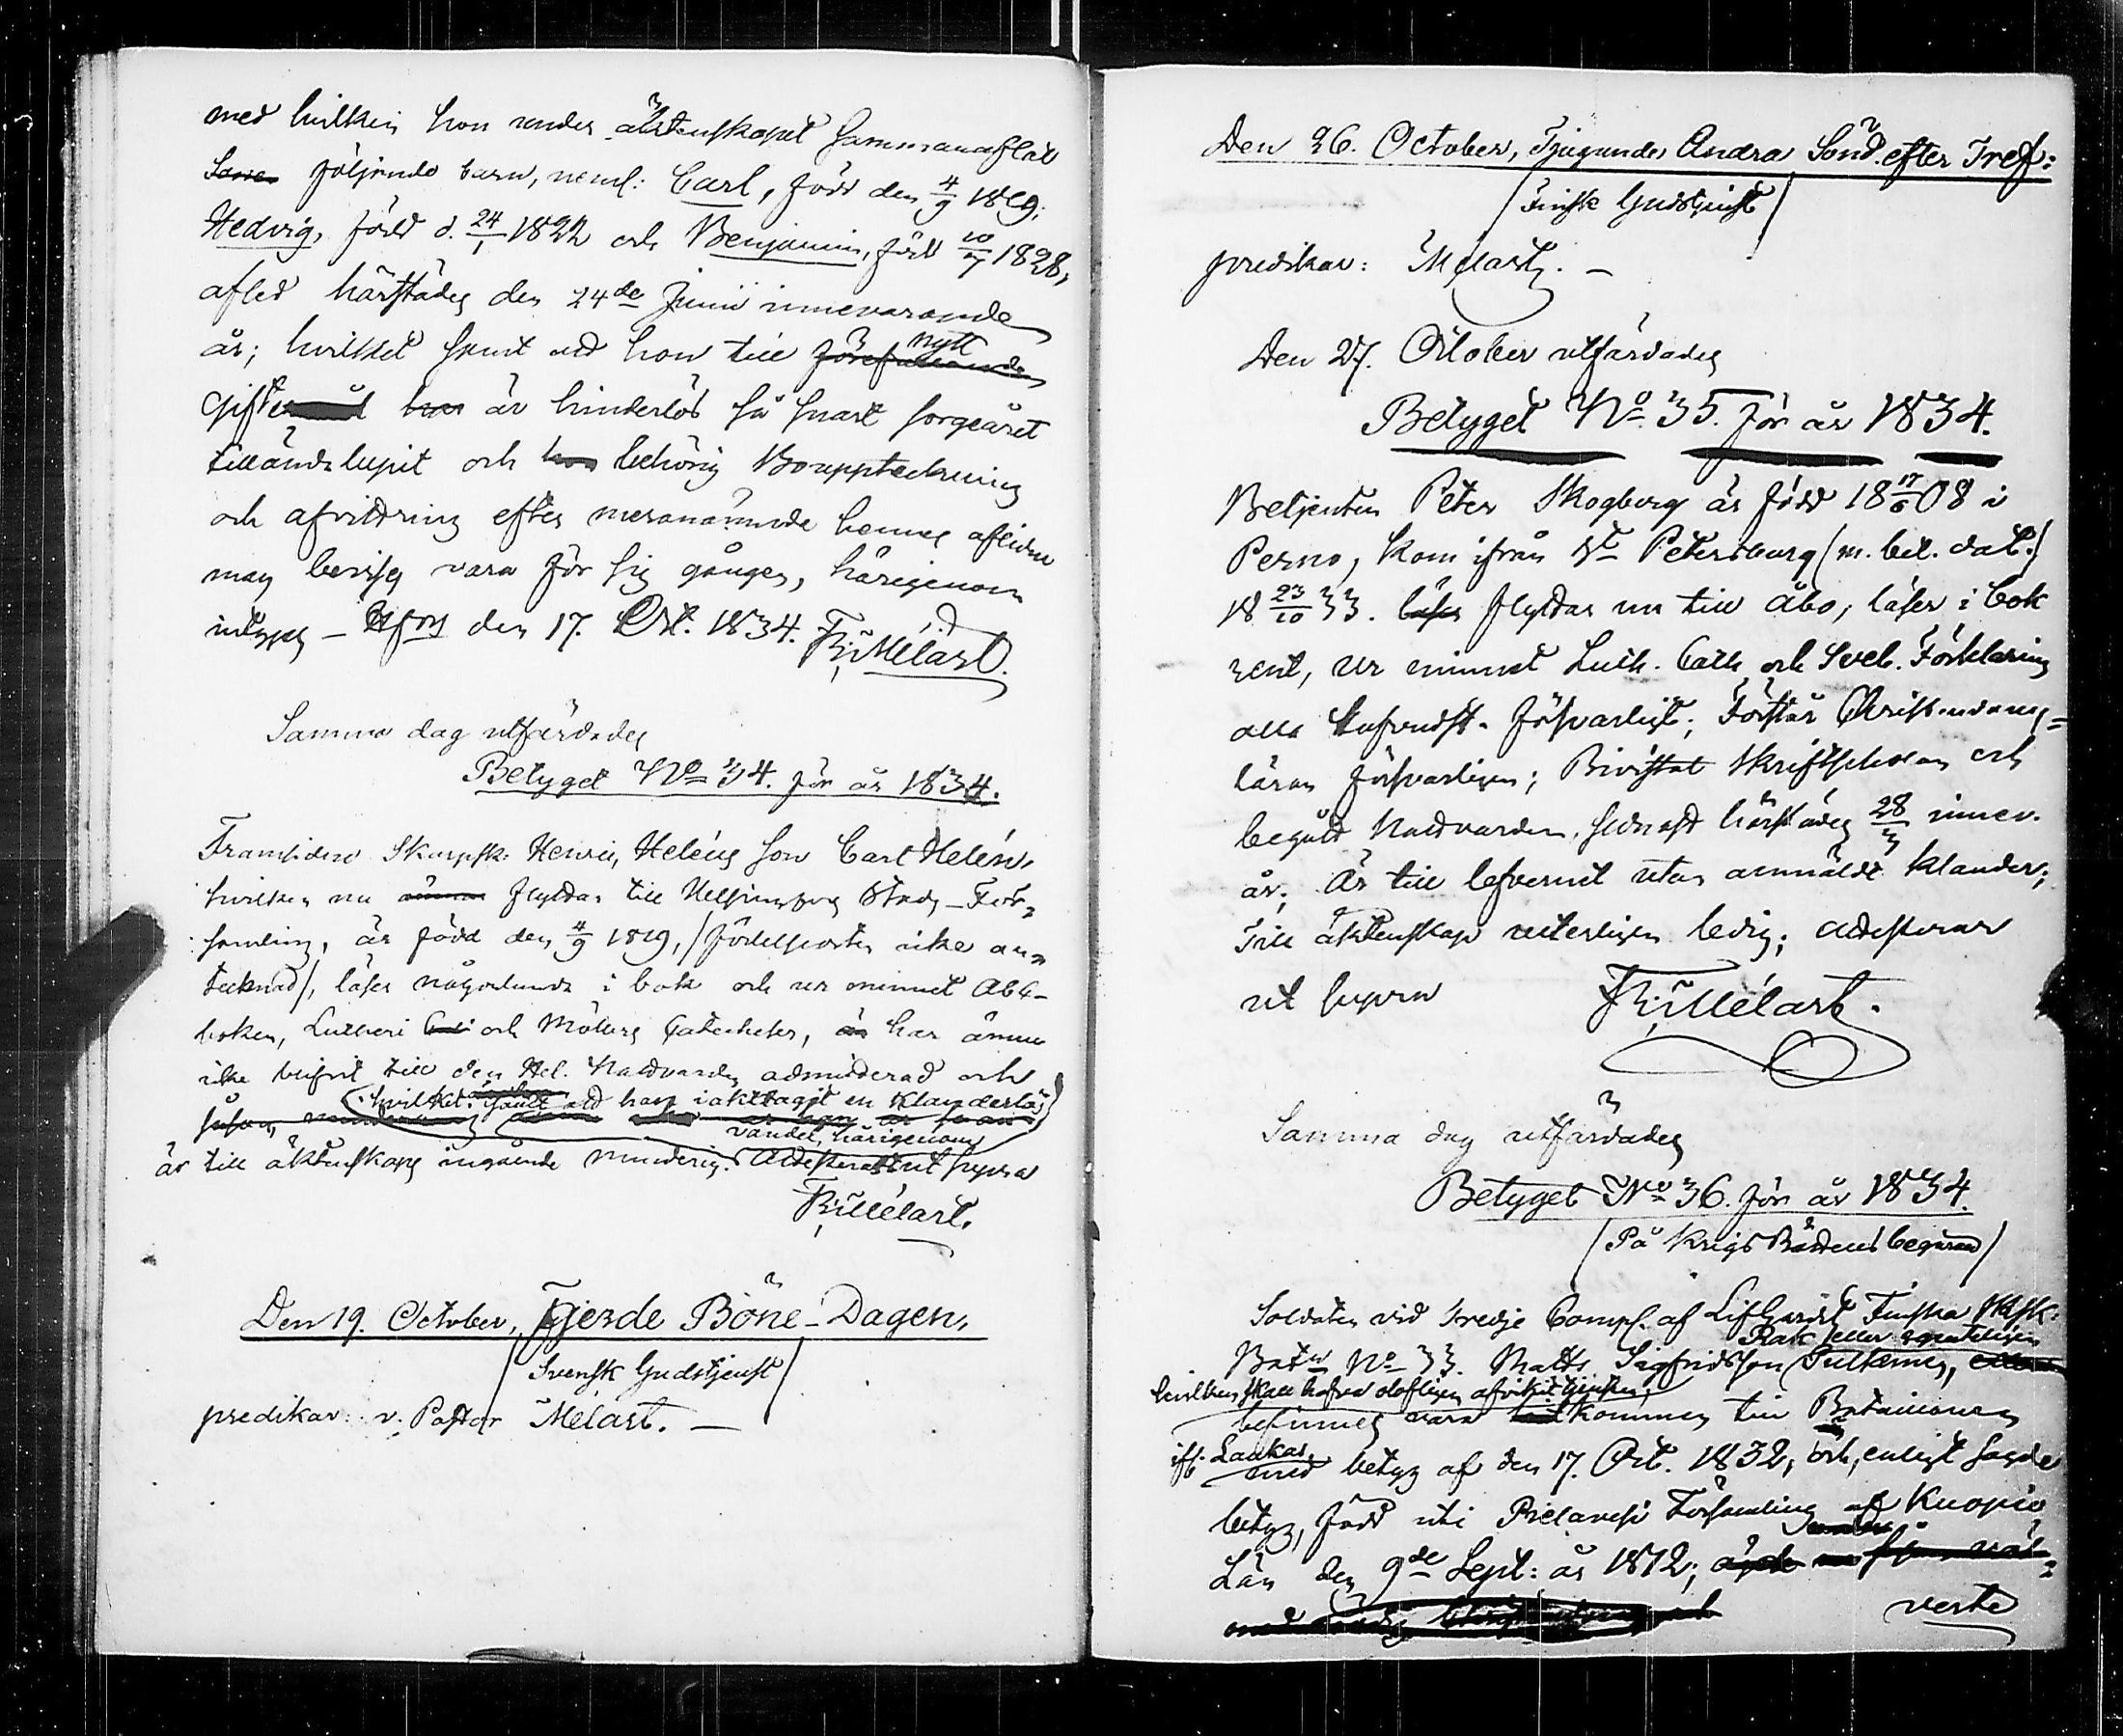 med hvilken hon under äktenskapet sammanaflat
följande barn, neml: Carl, född den 4/9 1819;
Hedvig, född d. 24/1 1822 och Benjamin, född 10/7 1828,
afled härstädes den 24de Junii innevarande
år; hvilket samt att hon till nytt
gifte är hinderlös så snart sorgeåret
tilländalupit och behörig Bouppteckning
och afvittring efter meranämnde hennes aflidne
man bevises vara för sig gången, härigenom
intygas – Hfors den 17. Oct. 1834. Melart.
Samma dag utfärdades
Betyget No 34. för år 1834.
Framlidne Skarpsk: Henric Heléns son Carl Helén,
hvilken nu flyttar till Helsingfors Stads-För-
samling, är född den 4/9 1819, /födelseorten icke an-
tecknad/, läser någorlunda i bok och ur minnet Abc-
boken, Lutheri och Möllers Catecheser, har ännu
icke blifvit till den Hel. Nattvarden admitterad och
hvilket, samt att han iakttagit en klanderlös
vandel, härigenom
är till äktenskaps ingående minderig. Attesteras ut supra
Melart.
Den 19. October, Fjerde Böne-Dagen,
/Svensk Gudstjenst/
predikar: v. Pastor Melart. —
Den 26. October, Tjugunde Andra Sönd. efter Tref:
/Finsk Gudstjenst/
predikar: Melart. —
Den 27. October utfärdades
Betyget No. 35. för år 1834.
Betjenten Peter Skogberg är född 18 17/6 08 i
Perno, kom ifrån St Petersburg /m. bet. dat./
18 23/10 33. läser flyttar nu till Åbo, läser i bok
rent, ur minnet Luth. Cath. och Sveb. Förklaring
alla försvarligt; Förstår Christendoms-
läran försvarligen; Bivistat Skriftskolan och
begått Nattvarden sednast härstädes 28/3 innev.
år; Är till lefvernet utan anmäldt klander;
Till äktenskap veterligen ledig; attesterar
ut supra Melart.
Samma dag utfärdades
Betyget No 36. för år 1834.
/På Krigs Rättens begäran/
Soldaten vid tredje Comp. af LifGardets Finska Sksk:
Rak eller
Batn No 33. Matts Sigfridsson Pulkinen,
hvilken skall hafva olofligen afvikit tjensten,
befinnes vara kommen till Bataillonen
ifr. Laukas
med betyg af den 17. Oct. 1832, och, enligt sagde
betyg, född uti Pielavesi Församling af Kuopio
Län den 9de Sept: år 1812;
verte